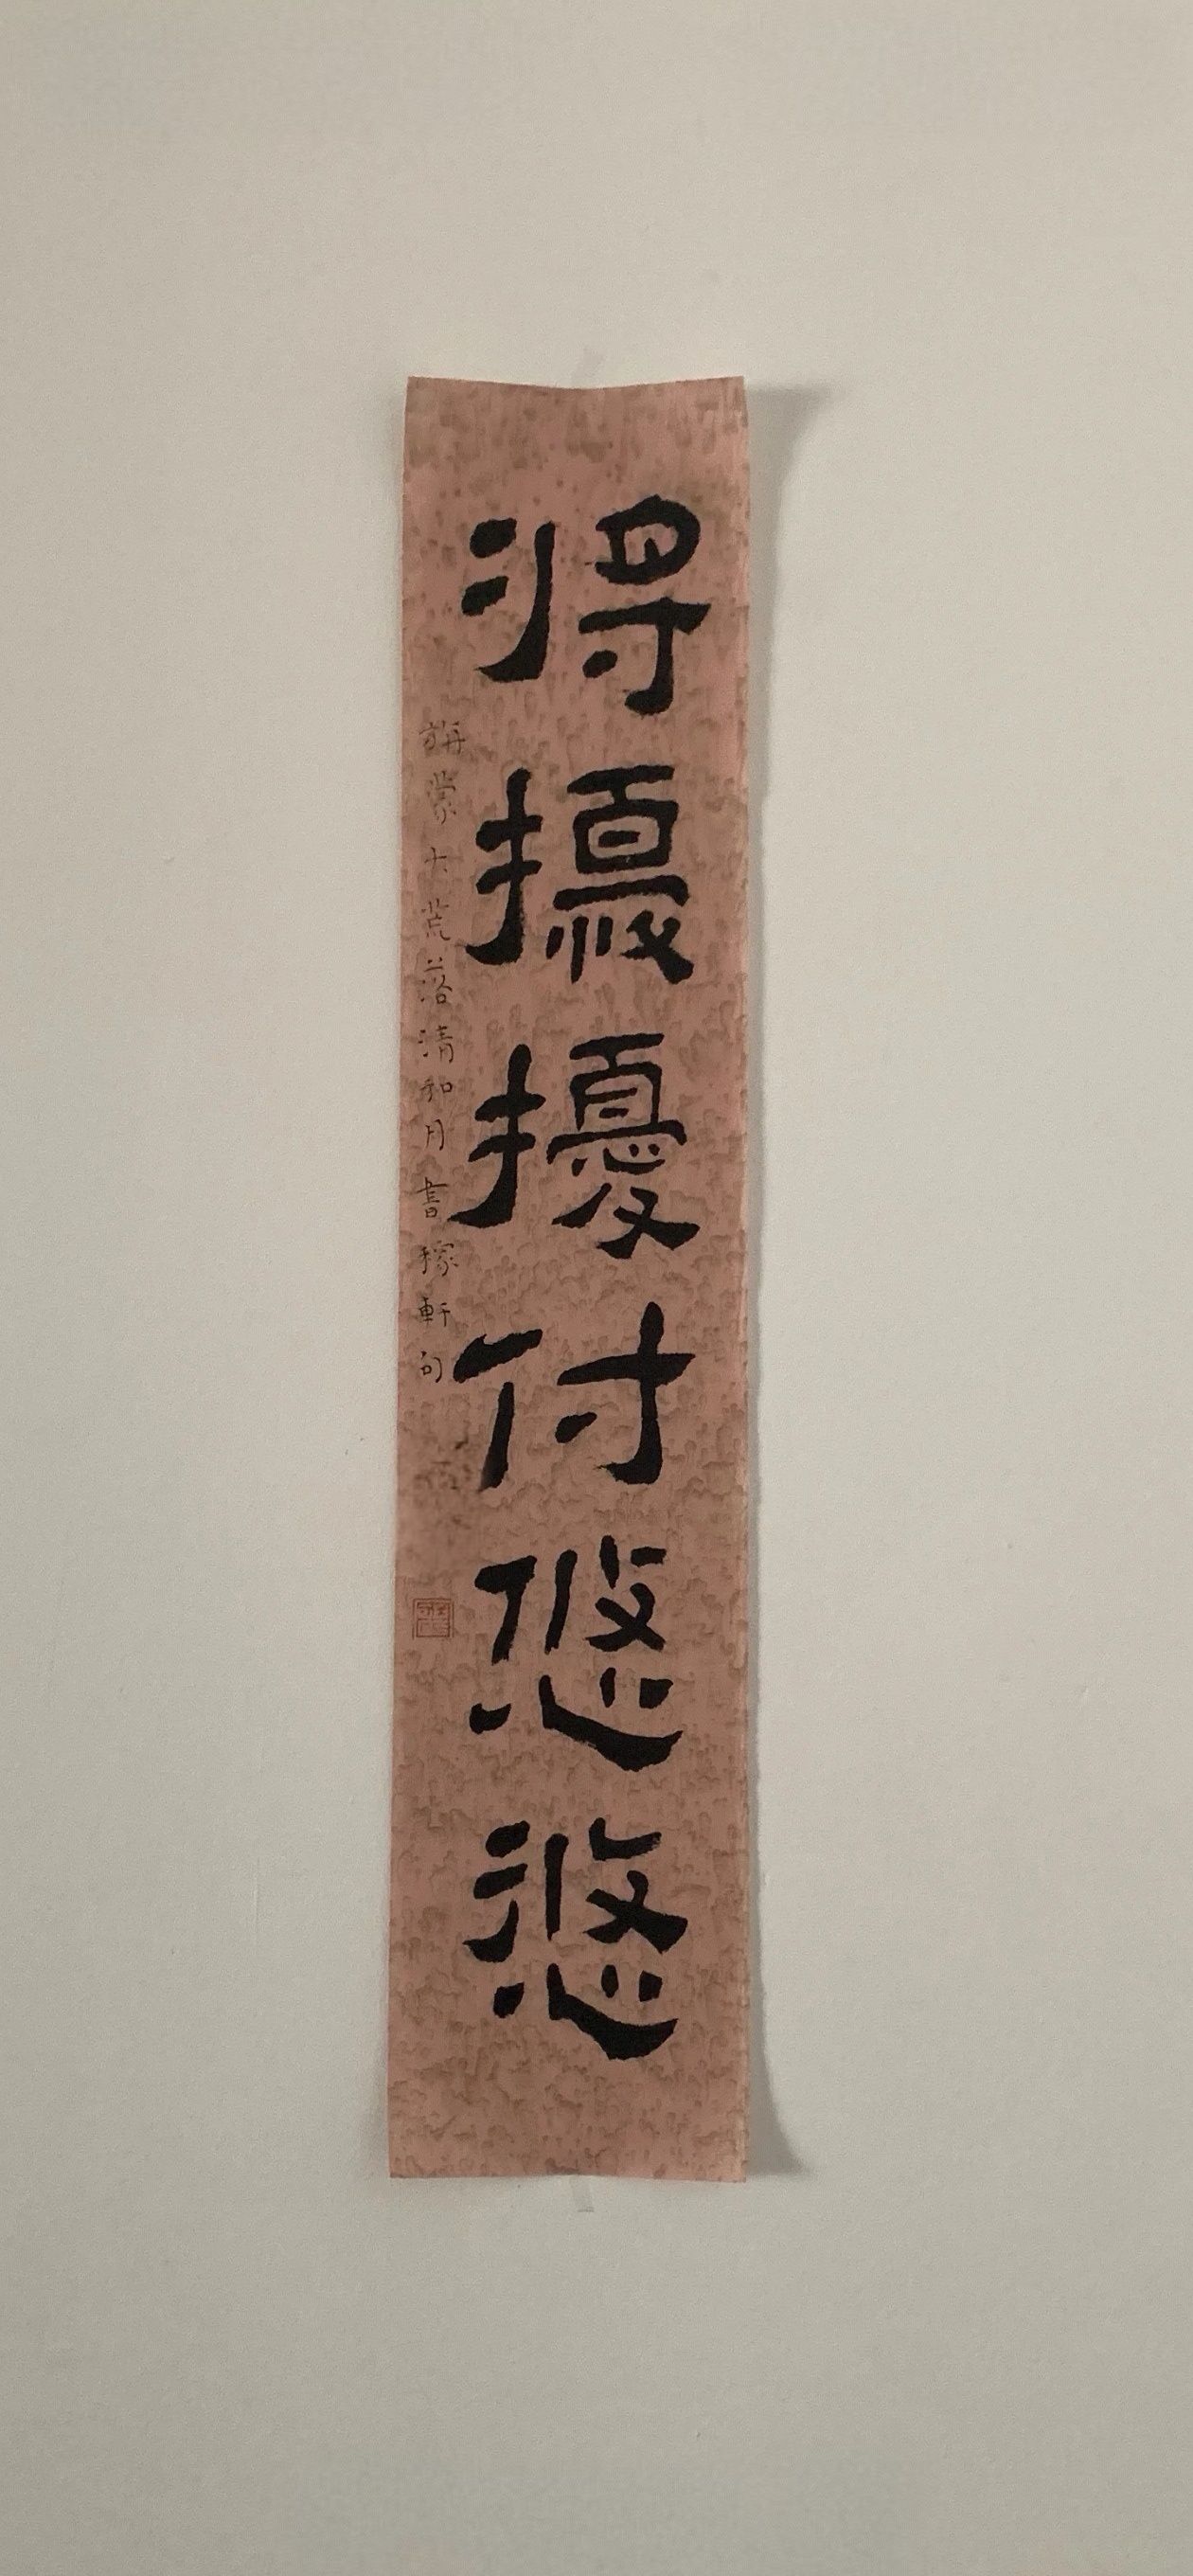 將擾擾付悠悠
旃蒙大荒落清和月書稼軒句